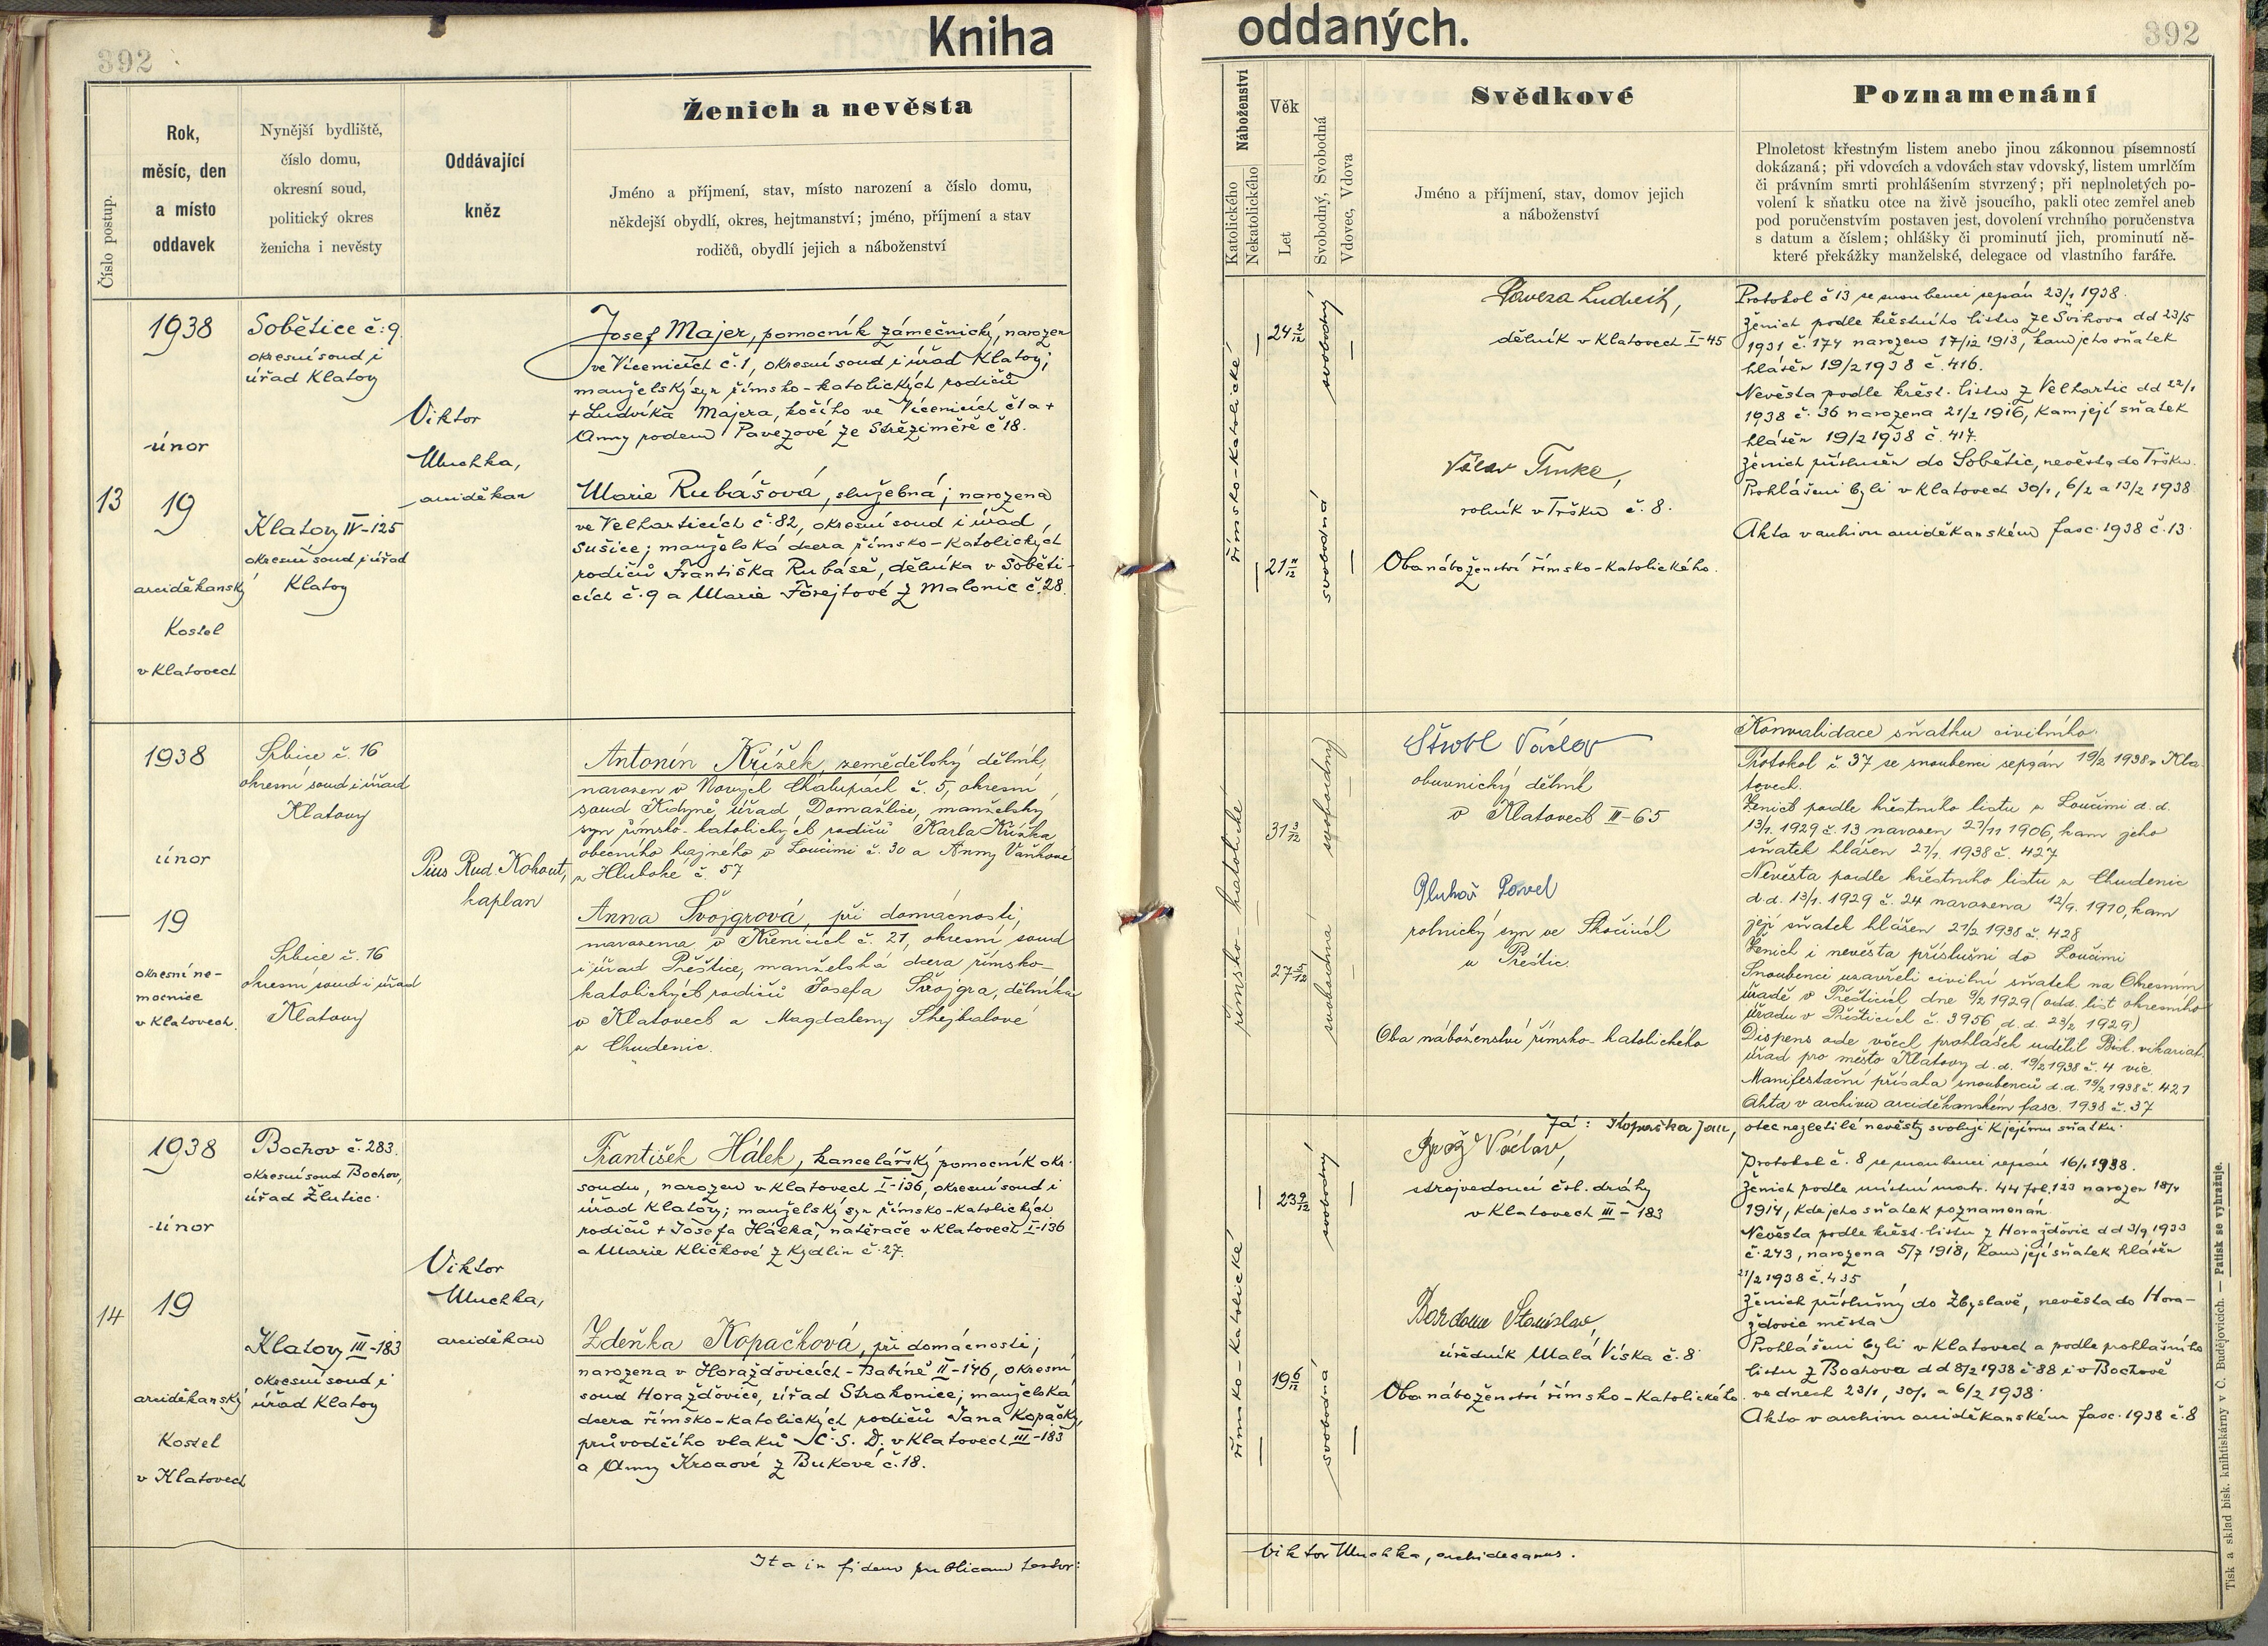 392
Kniha
Číslo postup.
Rok,
měsíc, den
a místo
oddavek
Nynější bydliště,
číslo domu,
okresní soud,
politický okres
ženicha i nevěsty
Oddávající
kněz
Ženich a nevěsta
Jméno a příjmení, stav, místo narození a číslo domu,
někdejší obydlí, okres, hejtmanství; jméno, příjmení a stav
rodičů, obydlí jejich a náboženství
13
1938
únor
19
arciděkanský
Kostel
v Klatovech
Sobětice č. 9
okresní soud i
úřad Klatovy
Klatovy IV-125
okresní soud i úřad
Klatovy
Viktor
Muchka,
arciděkan
Josef Majer, pomocník zámečnický, narozen
ve Vícenicích č. 1, okresní soud i úřad Klatovy;
manželský syn římsko-katolických rodičů
+ Ludvíka Majera, kočího ve Vícenicích č 1 a +
Anny rodem Pavézové ze Střeziměře č 18.
Marie Rubášová, služebná; narozena
ve Velharticích č. 82, okresní soud i úřad
Sušice; manželská dcera římsko-katolických
rodičů Františka Rubáše, dělníka v Soběti-
cích č. 9 a Marie Forejtové z Malonic č. 28.
1938
únor
19
okresní ne-
mocnice
v Klatovech
Srbice č. 16
okresní soud i úřad
Klatovy
Srbice č. 16
okresní soud i úřad
Klatovy
Pius Rud. Kohout,
kaplan
Antonín Křížek, zemědělský dělník,
narozen v Nových Chalupách č. 5, okresní
soud Kdyně, úřad Domažlice, manželský
syn římsko-katolických rodičů Karla Křížka
obecního hajného v Loučimi č. 30 a Anny Vaňkové
z Hluboké č. 57
Anna Švojgrová, při domácnosti,
narozena v Křenicích č. 21, okresní soud
i úřad Přeštice, manželská dcera římsko-
katolických rodičů Josefa Švojgra, dělníka
v Klatovech a Magdaleny Shejbalové
z Chudenic.
14
1938
únor
19
arciděkanský
Kostel
v Klatovech
Bochov č. 283.
okresní soud Bochov,
úřad Žlutice.
Klatovy III-183
okresní soud i
úřad Klatovy
Viktor
Muchka,
arciděkan
František Hálek, kancelářský pomocník okr.
soudu, narozen v Klatovech I-136, okresní soud i
úřad Klatovy; manželský syn římsko-katolických
rodičů + Josefa Hálka, natěrače v Klatovech I-136
a Marie Kličkové z Kydlin č. 27.
Zdeňka Kopačková, při domácnosti;
narozena v Horažďovicích-Babíně II-146, okresní
soud Horažďovice, úřad Strakonice; manželská
dcera římsko-katolických rodičů Jana Kopačky,
průvodčího vlaků Č. S. D. v Klatovech III-183
a Anny v Bukové č. 18.
Ita in fidem publicam testor:
oddaných.
392
Náboženství
Katolického
Nekatolického
Věk
Let
Svobodný, Svobodná
Vdovec, Vdova
Svědkové
Jméno a příjmení, stav, domov jejich
a náboženství
Poznamenání
Plnoletost křestným listem anebo jinou zákonnou písemností
dokázaná; při vdovcích a vdovách stav vdovský, listem umrlčím
či právním smrti prohlášením stvrzený; při neplnoletých po-
volení k sňatku otce na živě jsoucího, pakli otec zemřel aneb
pod poručenstvím postaven jest, dovolení vrchního poručenstva
s datum a číslem; ohlášky či prominutí jich, prominutí ně-
které překážky manželské, delegace od vlastního faráře.
římsko-katolické
24 2/12
svobodný
21 11/12
svobodná
Paveza Ludvík,
dělník v Klatovech I-45
rolník v Tršku č. 8.
Oba náboženství římsko-katolického.
Protokol č 13 se snoubenci sepsán 23/1 1938.
Ženich podle křestního listu ze Švihova dd 23/5
1931 č. 174 narozen 17/12 1913, kam jeho sňatek
hlášen 19/2 1938 č. 416.
Nevěsta podle křest. listu z Velhartic dd 22/1
1938 č. 36 narozena 21/2 1916, kam její sňatek
hlášen 19/2 1938 č. 417.
Ženich příslušen do Sobětic, nevěsta do Tršku.
Prohlášeni byli v Klatovech 30/1, 6/2 a 13/2 1938.
Akta v archivu arciděkanském fasc. 1938 č. 13.
římsko-katolické
31 3/12
svobodný
27 5/12
svobodná
Štrobl Václav
obuvnický dělník
v Klatovech III-65
Pavel
rolnický syn ve Skočicích
u Přeštic
Oba náboženství římsko-katolického
Konvalidace sňatku civilního.
Protokol č. 37 se snoubenci sepsán 19/2 1938 v Kla-
tovech.
Ženich podle křestního listu z Loučimi d. d.
13/1. 1929 č. 13 narozen 27/11 1906, kam jeho
sňatek hlášen 21/2. 1938 č. 427
Nevěsta podle křestního listu z Chudenic
d. d. 13/1. 1929 č. 24 narozena 12/9. 1910, kam
její sňatek hlášen 21/2 1938 č. 428
Ženich i nevěsta příslušni do Loučimi
Snoubenci uzavřeli civilní sňatek na Okresním
úřadě v Přešticích dne 9/2 1929 (odd. list okresního
úřadu v Přešticích č. 3956 d. d. 23/2 1929)
Dispens ode všech prohlášek udělil Bisk. vikariát.
úřad pro město Klatovy d. d. 19/2 1938 č. 4 vic.
Manifestační přísaha snoubenců d. d. 19/2 1938 č. 421
Akta v archivu arciděkanském fasc. 1938 č. 37
Já: Kopačka Jan, otec nezletilé nevěsty svoluji k jejímu sňatku.
římsko-katolické
23 9/12
svobodný
19 6/12
svobodná
Václav,
strojvedoucí čsl. dráhy
v Klatovech III-183
Stanislav,
úředník Malá Víska č. 8
Oba náboženství římsko-katolického.
Protokol č. 8 se snoubenci sepsán 16/1 1938.
Ženich podle místní matr. 44 fol. 123 narozen 18/4
1914, kde jeho sňatek poznamenán.
Nevěsta podle křest. listu z Horažďovic dd 3/9 1933
č. 243, narozena 5/7 1918, kam její sňatek hlášen
21/2 1938 č. 435
Ženich příslušný do Zbyslavě, nevěsta do Hora-
žďovic města
Prohlášeni byli v Klatovech a podle prohlašního
listu z Bochova dd 8/2 1938 č. 88 i v Bochově
ve dnech 23/1, 30/1 a 6/2 1938.
Akta v archivu arciděkanském fasc. 1938 č. 8
Viktor Muchka, archidecanus.
Tisk a sklad bisk. knihtiskárny v Č. Budějovicích. — Patisk se vyhražuje.